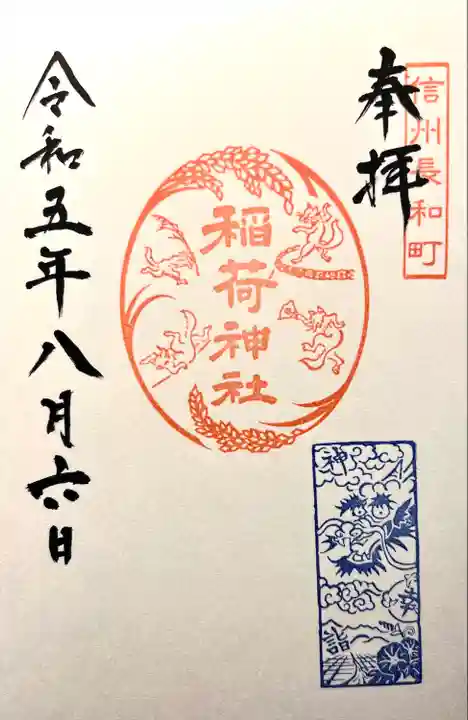 信州長和町
奉拝
稲荷神社
神
詣
令和五年八月六日